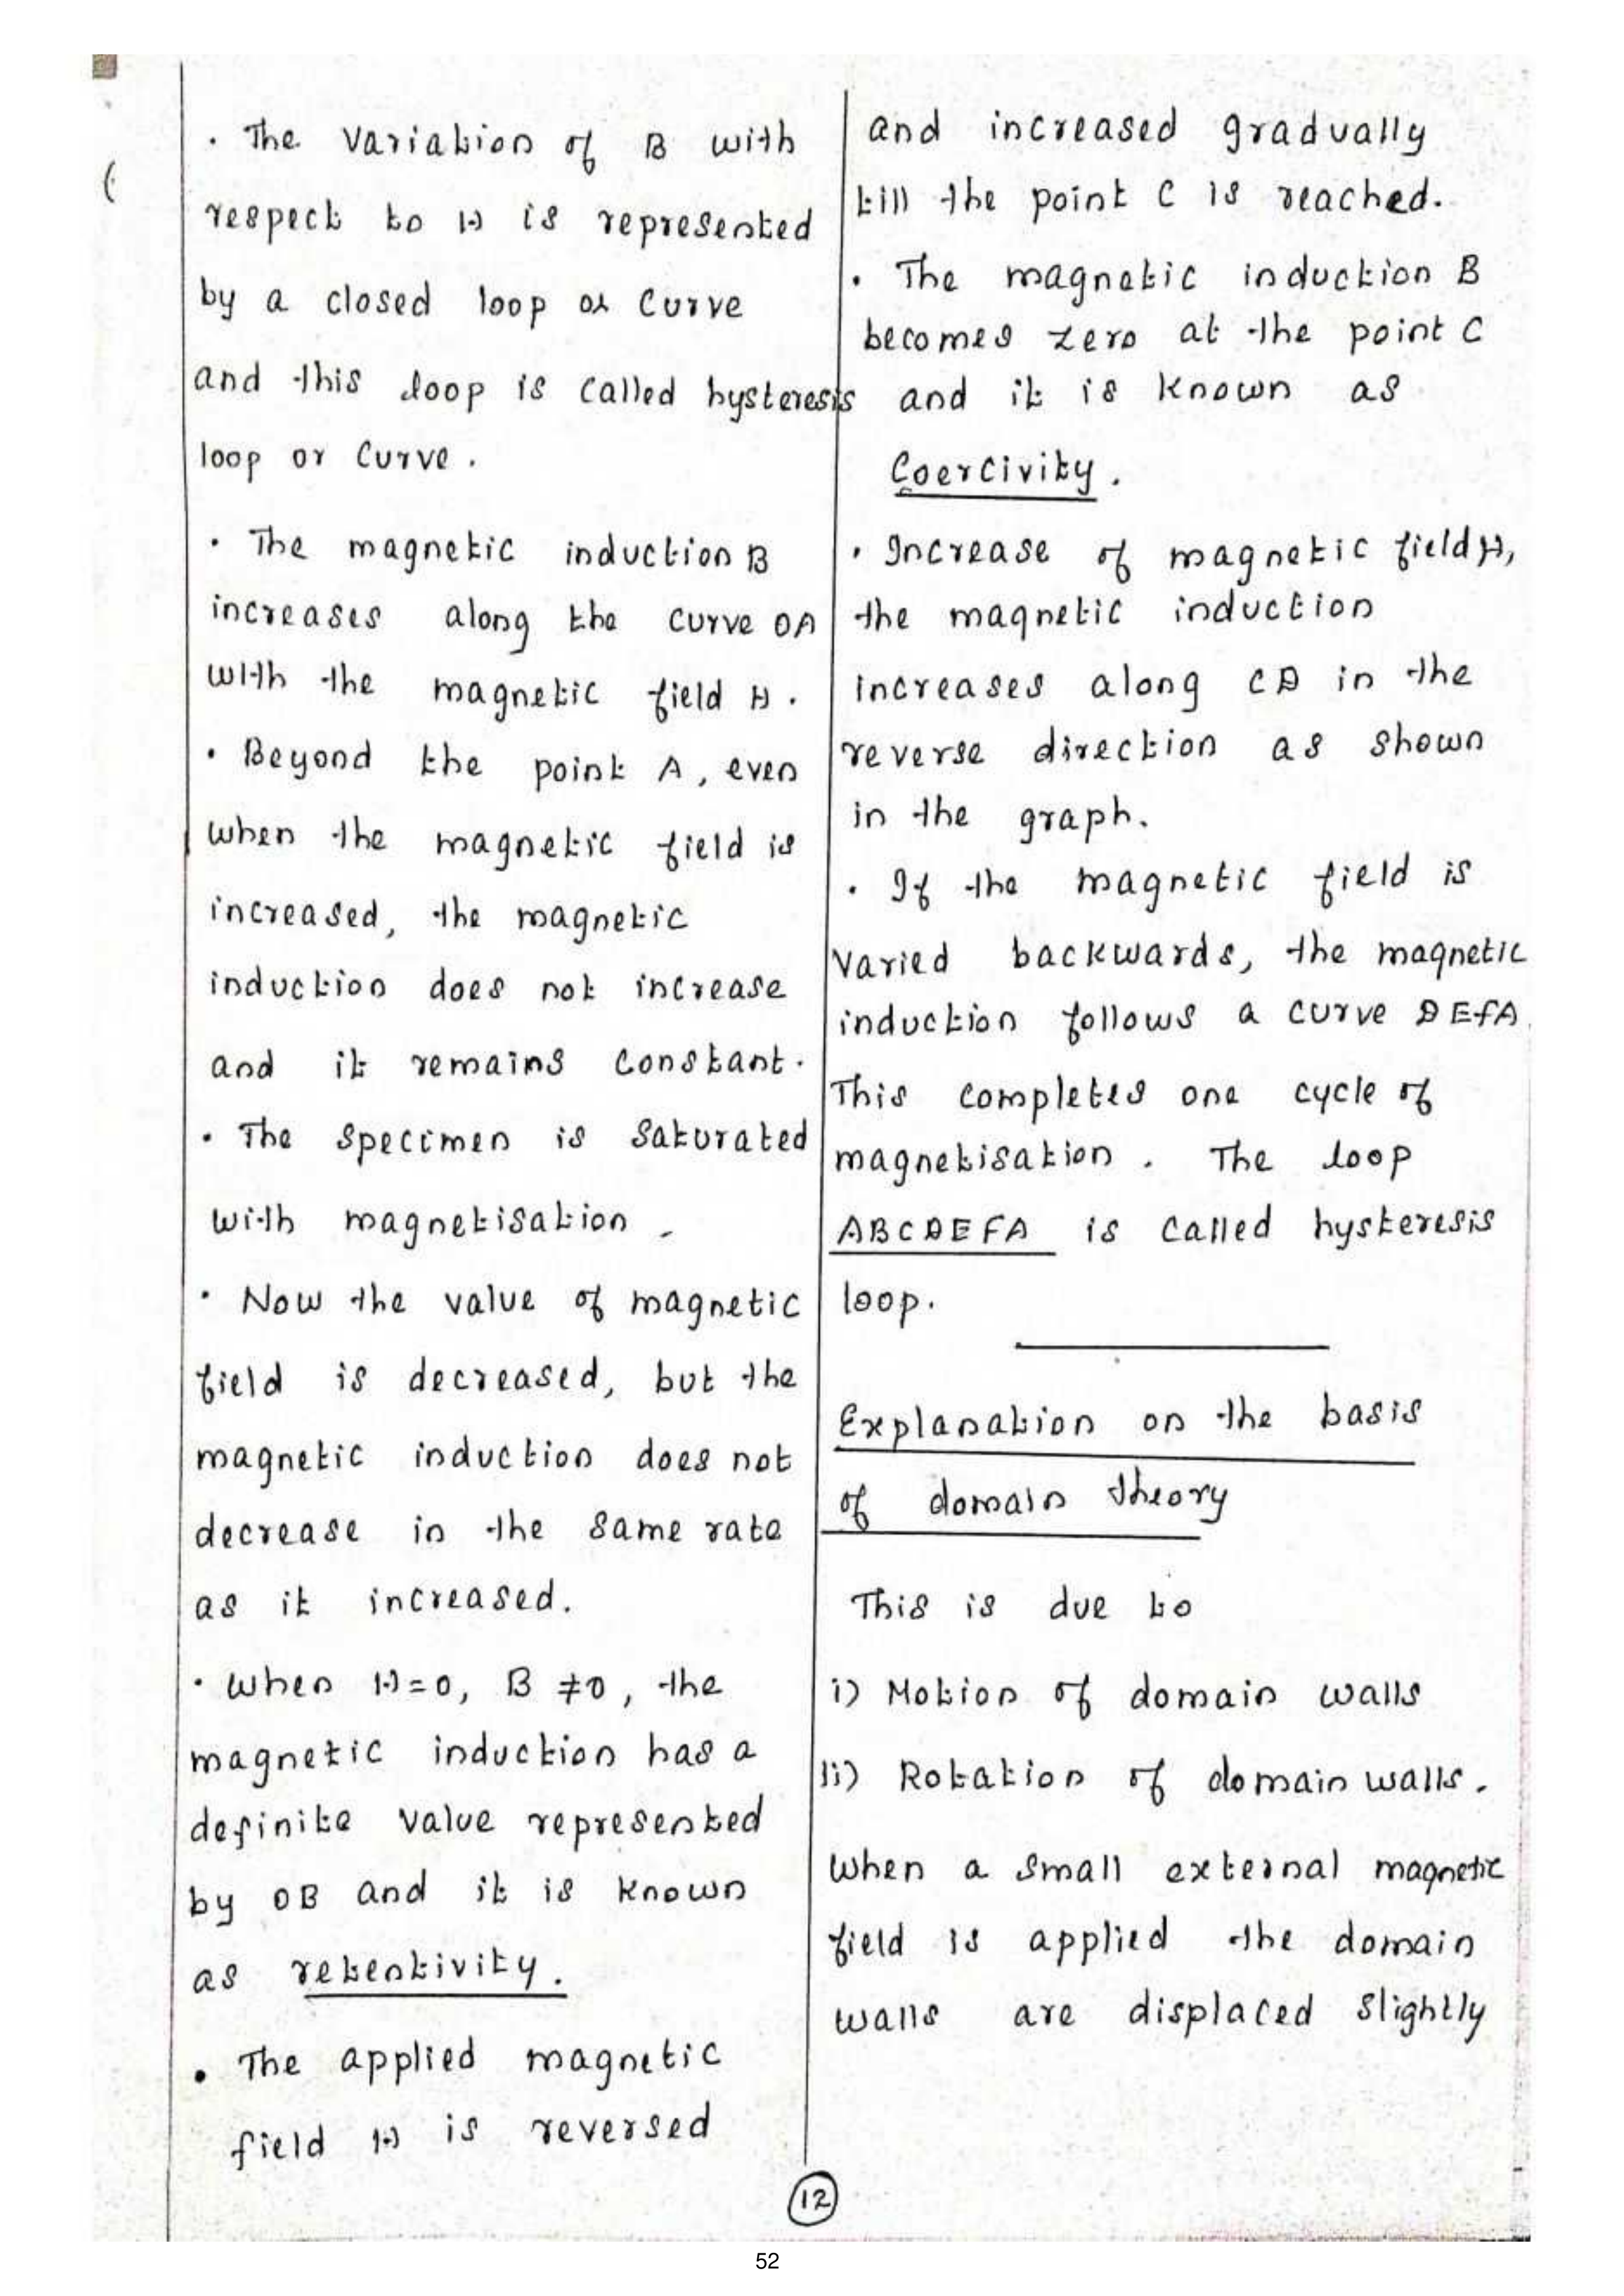 · The variation of B with
respect to H is represented
by a closed loop or curve
and this loop is called hysteresis
loop or curve.
· The magnetic induction B
increases along the curve OA
with the magnetic field H.
· Beyond the point A, even
when the magnetic field is
increased, the magnetic
induction does not increase
and it remains constant.
· The specimen is saturated
with magnetisation.
· Now the value of magnetic
field is decreased, but the
magnetic induction does not
decrease in the same rate
as it increased.
· When H=0, B ≠0, the
magnetic induction has a
definite value represented
by OB and it is known
as retentivity.
· The applied magnetic
field H is reversed
and increased gradually
till the point C is reached.
· The magnetic induction B
becomes zero at the point C
and it is known as
Coercivity.
· Increase of magnetic field H,
the magnetic induction
increases along CD in the
reverse direction as shown
in the graph.
· If the magnetic field is
varied backwards, the magnetic
induction follows a curve DEFA.
This completes one cycle of
magnetisation. The loop
ABCDEFA is called hysteresis
loop.
Explanation on the basis
of domain theory
This is due to
i) Motion of domain walls
ii) Rotation of domain walls.
When a small external magnetic
field is applied the domain
walls are displaced slightly
12
52